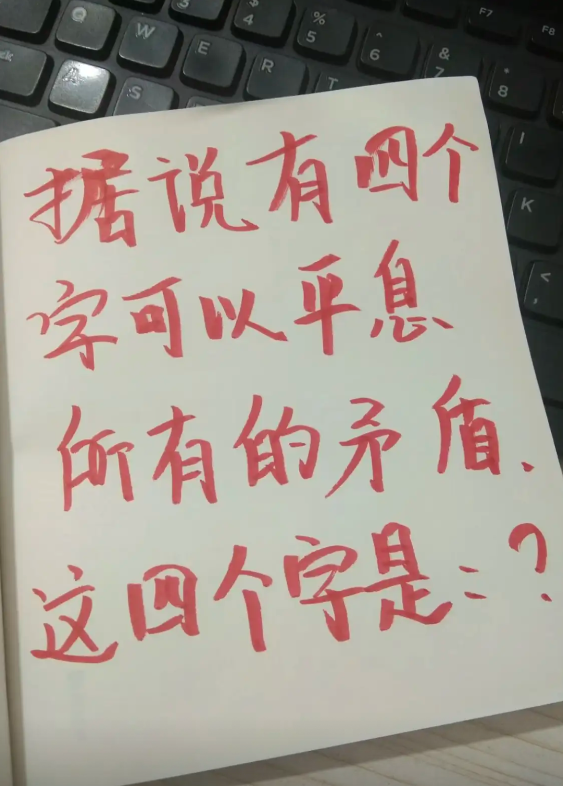 Q W E R T
$ 4
% 5
^ 6
& 7
* 8
F7
F8
S
I
K
<
,
据说有四个
字可以平息
所有的矛盾.
这四个字是=?